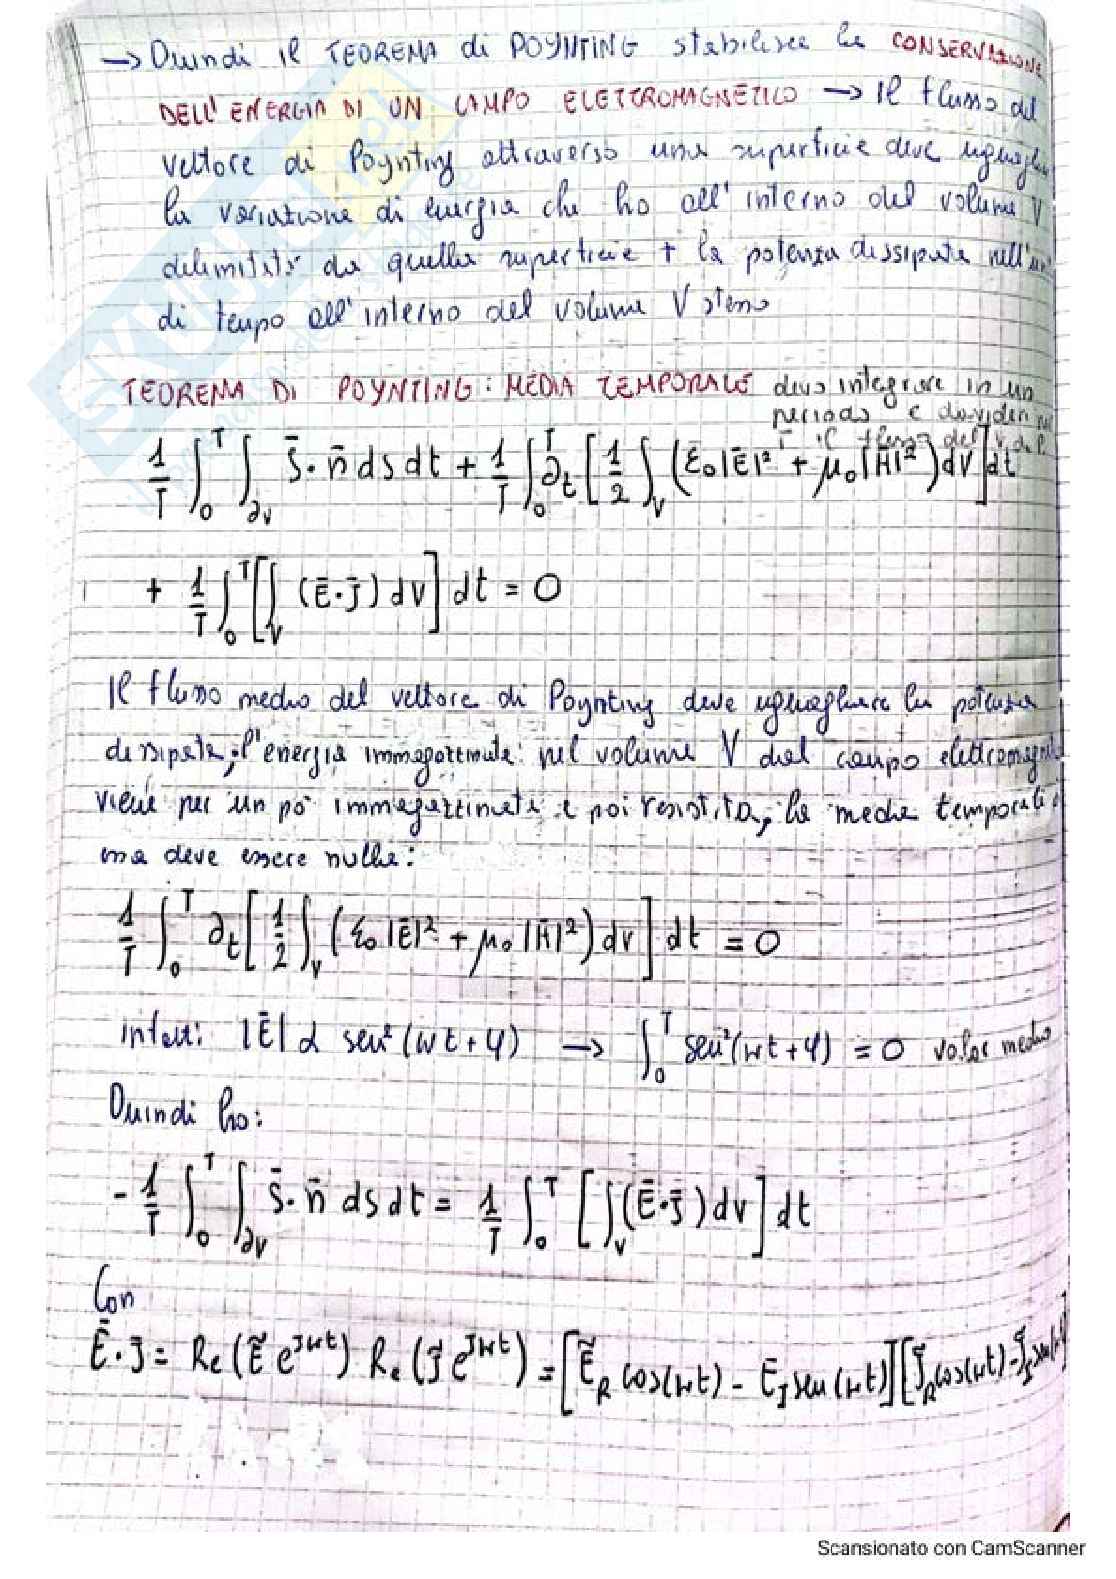 → Quindi il TEOREMA di POYNTING stabilisce la CONSERVAZIONE
DELL'ENERGIA DI UN CAMPO ELETTROMAGNETICO → Il flusso del
vettore di Poynting attraverso una superficie deve
la variazione di energia che ho all'interno del volume V
delimitato da quella superficie + la potenza dissipata
di tempo all'interno del volume V stesso
TEOREMA DI POYNTING: MEDIA TEMPORALE devo integrare in un
periodo e dividere
T il flusso del
1/T ∫₀ᵀ ∫_∂V S̄·n̄ ds dt + 1/T ∫₀ᵀ ∂t [1/2 ∫_V (ε₀|Ē|² + μ₀|H̄|²) dV] dt
+ 1/T ∫₀ᵀ [∫_V (Ē·J̄) dV] dt = 0
Il flusso medio del vettore di Poynting deve uguagliare la potenza
dissipata, l'energia immagazzinata nel volume V dal campo
viene per un po immagazzinata e poi resistita, la media temporale
ma deve essere nulla:
1/T ∫₀ᵀ ∂t [1/2 ∫_V (ε₀|Ē|² + μ₀|H̄|²) dV] dt = 0
infatti: |Ē| α sen²(wt+φ) → ∫₀ᵀ sen²(wt+φ) = 0 valor medio
Quindi ho:
- 1/T ∫₀ᵀ ∫_∂V S̄·n̄ ds dt = 1/T ∫₀ᵀ [∫_V (Ē·J̄) dV] dt
Con
Ē·J̄ = Re(Ẽ e^{jwt}) Re(J̃ e^{jwt}) = [Ẽ_R cos(wt) - E_J sen(wt)] [J̃_R cos(wt) - J̃_J sen(wt)]
Scansionato con CamScanner